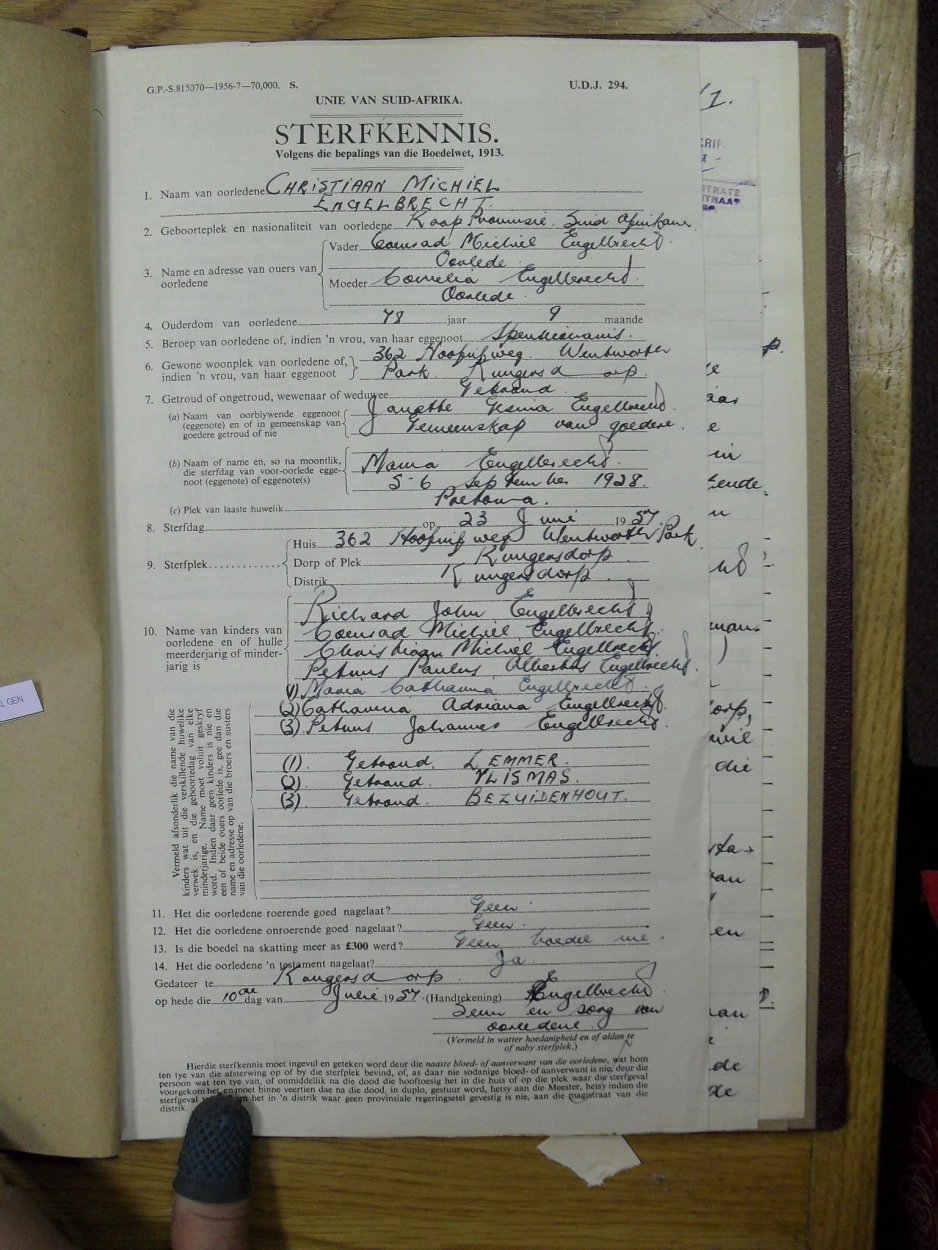 G.P.-S.815070—1956-7—70,000. S. U.D.J. 294.
UNIE VAN SUID-AFRIKA.
STERFKENNIS.
Volgens die bepalings van die Boedelwet, 1913.
1. Naam van oorledene CHRISTIAAN MICHIEL
ENGELBRECHT.
2. Geboorteplek en nasionaliteit van oorledene Kaap Provinsie. Suid Afrikaner
3. Name en adresse van ouers van oorledene
Vader Coenrad Michiel Engelbrecht
Oorlede.
Moeder Cornelia Engelbrecht
Oorlede.
4. Ouderdom van oorledene 78 jaar 9 maande
5. Beroep van oorledene of, indien 'n vrou, van haar eggenoot
6. Gewone woonplek van oorledene of, 362 Hoofrifweg. Wentworth
indien 'n vrou, van haar eggenoot Park. Krugersdorp
7. Getroud of ongetroud, wewenaar of weduwee Getroud.
(a) Naam van oorblywende eggenoot
(eggenote) en of in gemeenskap van
goedere getroud of nie
Engelbrecht.
Gemeenskap van goedere.
(b) Naam of name en, so na moontlik,
die sterfdag van voor-oorlede egge-
noot (eggenote) of eggenote(s)
Maria Engelbrecht.
5-6 September 1928.
(c) Plek van laaste huwelik Pretoria.
8. Sterfdag op 23 Junie 1957.
9. Sterfplek
Huis 362 Hoofrifweg Wentworth Park
Dorp of Plek Krugersdorp
Distrik Krugersdorp.
10. Name van kinders van
oorledene en of hulle
meerderjarig of minder-
jarig is
Richard John Engelbrecht
Coenrad Michiel Engelbrecht
Christiaan Michiel Engelbrecht
Petrus Paulus Albertus Engelbrecht
(1) Maria Catharina Engelbrecht
(2) Catharina Adriana Engelbrecht
(3) Petrus Johannes Engelbrecht
Vermeld afsonderlik die name van die
kinders wat uit die verskillende huwelike
verwek is, en die geboortedag van elke
minderjarige. Name moet voluit geskryf
word. Indien daar geen kinders is nie en
een of beide ouers oorlede is, gee dan die
name en adresse op van die broers en susters
van die oorledene.
(1). Getroud. LEMMER.
(2). Getroud. VLISMAS.
(3). Getroud. BEZUIDENHOUT.
11. Het die oorledene roerende goed nagelaat? Geen.
12. Het die oorledene onroerende goed nagelaat? Geen.
13. Is die boedel na skatting meer as £300 werd? Geen boedel nie.
14. Het die oorledene 'n testament nagelaat? Ja
Gedateer te Krugersdorp.
op hede die 10de dag van Julie 1957 (Handtekening) Engelbrecht
Seun en sorg van
oorledene.
(Vermeld in watter hoedanigheid en of aldan te
of naby sterfplek.)
Hierdie sterfkennis moet ingevul en geteken word deur die naaste bloed- of aanverwant van die oorledene, wat hom
ten tye van die afsterwing op of by die sterfplek bevind, of, as daar nie sodanige bloed- of aanverwant is nie, deur die
persoon wat ten tye van, of onmiddellik na die dood die hooftoesig het in die huis of op die plek waar die sterfgeval
voorgekom het, en moet binne veertien dae na die dood, in duplo, gestuur word, hetsy aan die Meester, hetsy indien die
sterfgeval het in 'n distrik waar geen provinsiale regeringsetel gevestig is nie, aan die magistraat van die
distrik.